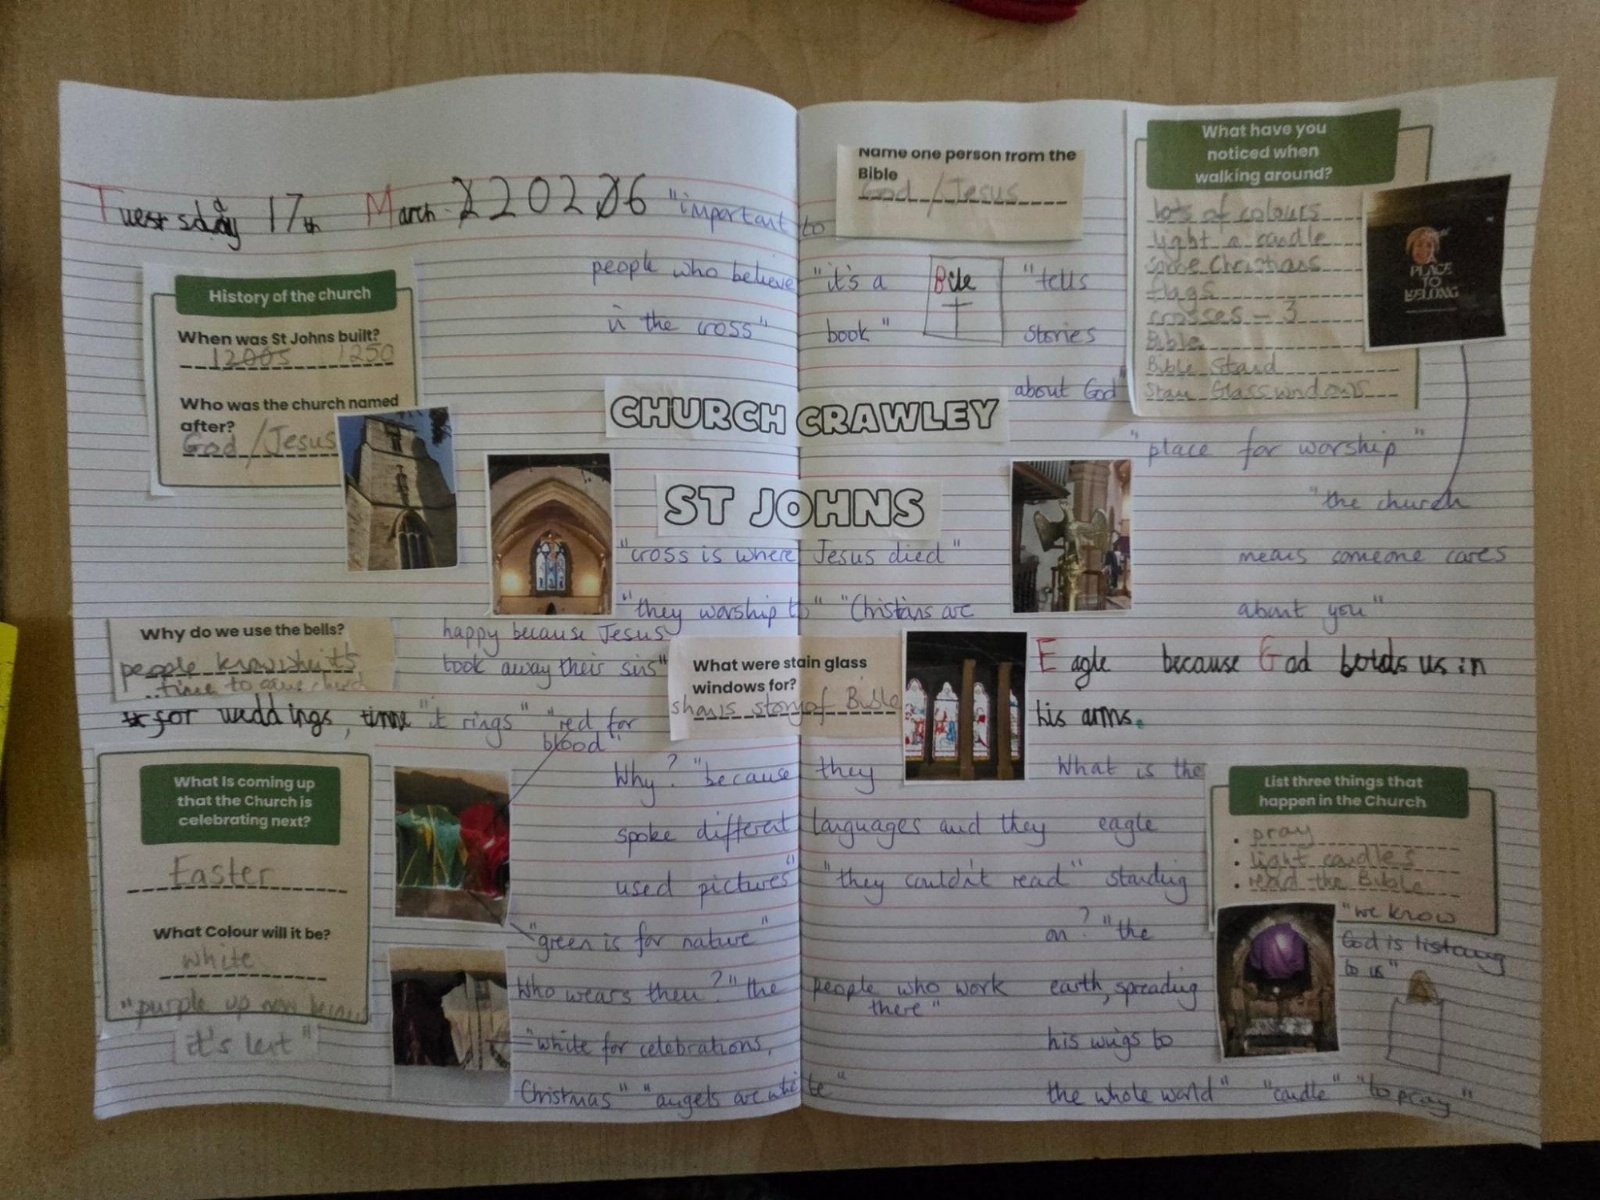 Tuesday 17th March 2026
"important to
people who believe
in the cross"
History of the church
When was St Johns built?
1200s 1250
Who was the church named
after?
God/Jesus
Name one person from the
Bible
God/Jesus
"it's a
book"
Bible
"tells
stories
about God"
What have you
noticed when
walking around?
lots of colours
light a candle
some Christians
flags
crosses - 3
Bible
Bible Stand
Stan Glass windows
A PLACE
TO
BELONG
CHURCH CRAWLEY
ST JOHNS
"place for worship"
"the church
means someone cares
about you"
"cross is where Jesus died"
"they worship to" "Christians are
happy because Jesus
took away their sins"
Why do we use the bells?
people know when its
time to come church
for weddings, time "it rings" "red for
blood"
What were stain glass
windows for?
shows story of Bible
Eagle because God holds us in
his arms.
Why? "because they
spoke different languages and they
used pictures" "they couldn't read"
What is the
eagle
standing
on? "the
earth, spreading
his wigs to
the whole world"
What Is coming up
that the Church is
celebrating next?
Easter
What Colour will it be?
white
"purple up now because
it's lent"
"green is for nature"
Who wears them? "the people who work
there"
"white for celebrations,
Christmas" "angels are white"
List three things that
happen in the Church
• pray
• light candles
• read the Bible
"we know
God is listening
to us"
"candle" "to pray"